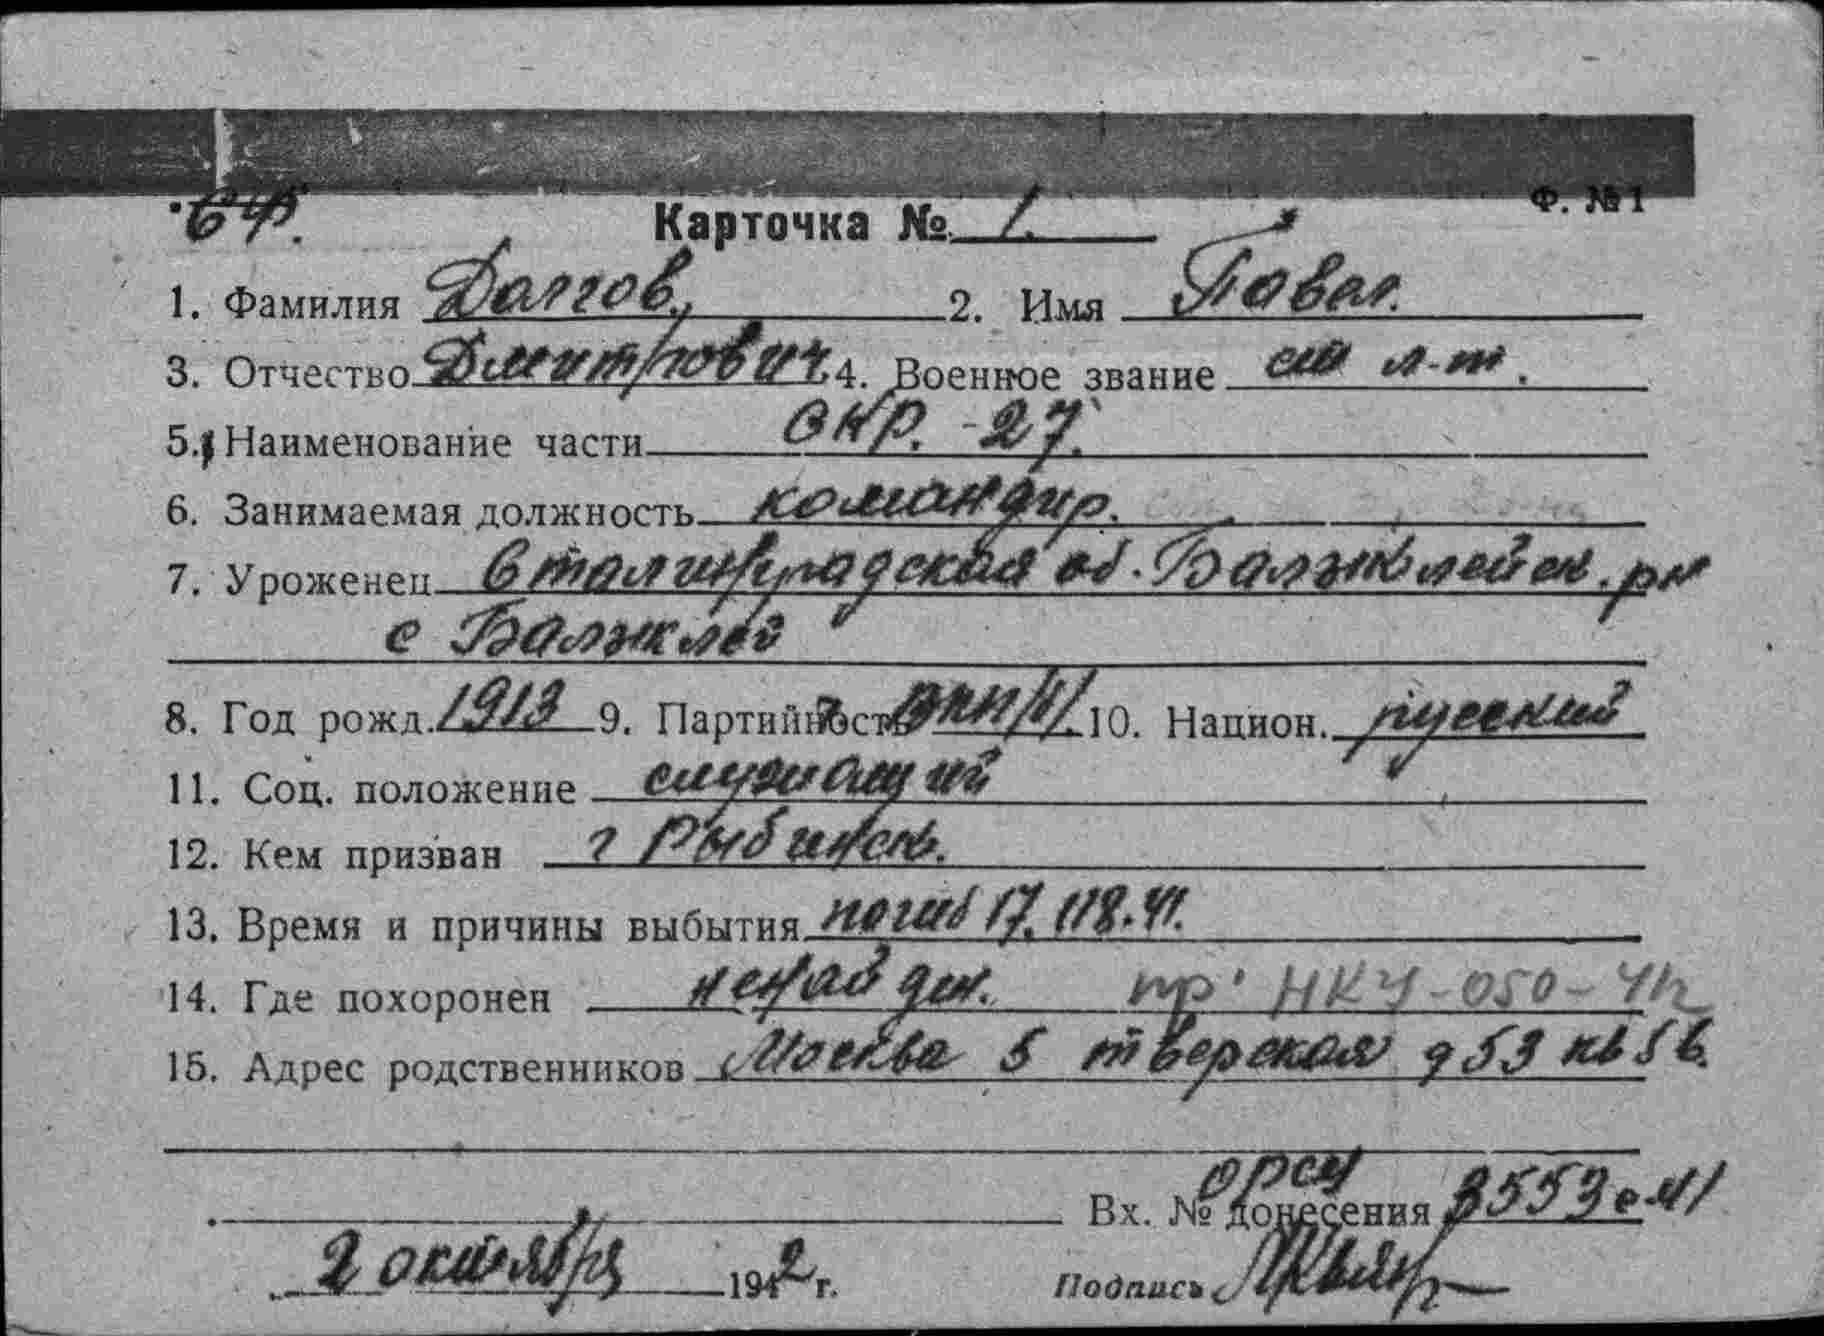 СФ.
Ф. №1
Карточка № 1.
1. Фамилия Долгов, 2. Имя Павел.
3. Отчество Дмитрович. 4. Военное звание ст л-т.
5. Наименование части СКР. -27.
6. Занимаемая должность командир.
7. Уроженец Сталинградская об. Балыклейск. рн
с Балыклей
8. Год рожд. 1913 9. Партийность 10. Национ. русский
11. Соц. положение служащий
12. Кем призван г Рыбинск.
13. Время и причины выбытия погиб 17. 41.
14. Где похоронен ненайден. пр. НКУ-050-
15. Адрес родственников Москва 5 тверская д 53 кв 56.
орсу
Вх. № донесения 3553с-41
2 октября 1942 г. Подпись